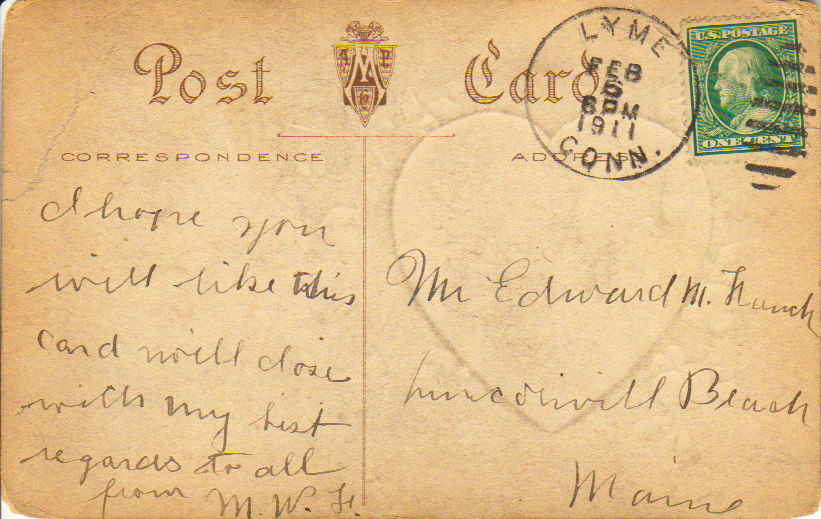 Post Card
A M P Co
LYME
FEB
6
6 PM
1911
CONN.
U.S. POSTAGE
ONE CENT
CORRESPONDENCE
ADDRESS
I hope you
will like this
card will close
with my best
regards to all
from M. W. H.
Mr Edward M. French
Lincolnvill Beach
Maine